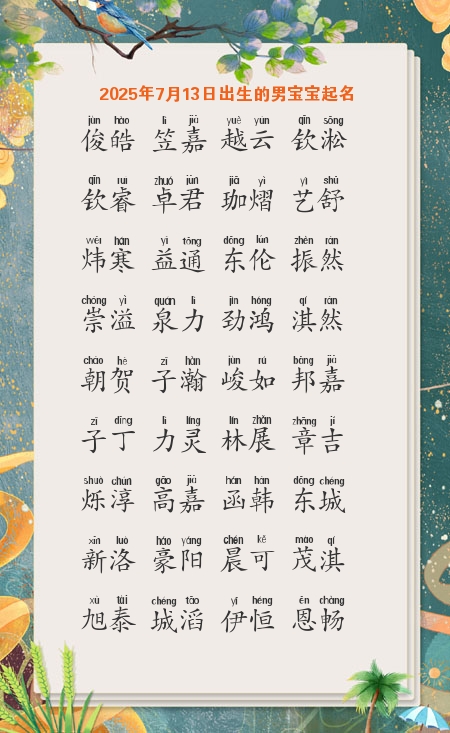 2025年7月13日出生的男宝宝起名
jùn hào lì jiā yuè yún qīn sōng
俊皓 笠嘉 越云 钦淞
qīn ruì zhuó jūn jiā yì yì shū
钦睿 卓君 珈熠 艺舒
wěi hán yì tōng dōng lún zhèn rán
炜寒 益通 东伦 振然
chóng yì quán lì jìn hóng qí rán
崇溢 泉力 劲鸿 淇然
cháo hè zǐ hàn jùn rú bāng jiā
朝贺 子瀚 峻如 邦嘉
zǐ dīng lì líng lín zhǎn zhāng jí
子丁 力灵 林展 章吉
shuò chún gāo jiā hán hán dōng chéng
烁淳 高嘉 函韩 东城
xīn luò háo yáng chén kě mào qí
新洛 豪阳 晨可 茂淇
xù tài chéng tāo yī héng ēn chàng
旭泰 城滔 伊恒 恩畅